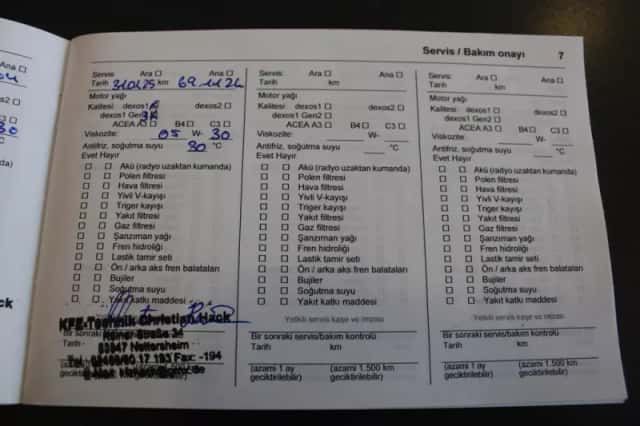 Servis / Bakım onayı 7
Ana
Servis: Ara Ana
Tarih km
Motor yağı
Kalitesi: dexos1 dexos2
dexos1 Gen2
ACEA A3 B4 C3
Viskozite: 05 W- 30
Antifriz, soğutma suyu 30 °C
Evet Hayır
Akü (radyo uzaktan kumanda)
Polen filtresi
Hava filtresi
Yivli V-kayışı
Triger kayışı
Yakıt filtresi
Gaz filtresi
Şanzıman yağı
Fren hidroliği
Lastik tamir seti
Ön / arka aks fren balataları
Bujiler
Soğutma suyu
Yakıt katkı maddesi
KFE-Technik Christian Hack
Bir sonraki
Tarih
(azami 1 ay
geciktirilebilir)
(azami 1.500 km
geciktirilebilir)
Servis: Ara Ana
Tarih km
Motor yağı
Kalitesi: dexos1 dexos2
dexos1 Gen2
ACEA A3 B4 C3
Viskozite: W-
Antifriz, soğutma suyu °C
Evet Hayır
Akü (radyo uzaktan kumanda)
Polen filtresi
Hava filtresi
Yivli V-kayışı
Triger kayışı
Yakıt filtresi
Gaz filtresi
Şanzıman yağı
Fren hidroliği
Lastik tamir seti
Ön / arka aks fren balataları
Bujiler
Soğutma suyu
Yakıt katkı maddesi
Yetkili servis kaşe ve imzası
Bir sonraki servis/bakım kontrolü
Tarih km
(azami 1 ay
geciktirilebilir)
(azami 1.500 km
geciktirilebilir)
Servis: Ara Ana
Tarih km
Motor yağı
Kalitesi: dexos1 dexos2
dexos1 Gen2
ACEA A3 B4 C3
Viskozite: W-
Antifriz, soğutma suyu °C
Evet Hayır
Akü (radyo uzaktan kumanda)
Polen filtresi
Hava filtresi
Yivli V-kayışı
Triger kayışı
Yakıt filtresi
Gaz filtresi
Şanzıman yağı
Fren hidroliği
Lastik tamir seti
Ön / arka aks fren balataları
Bujiler
Soğutma suyu
Yakıt katkı maddesi
Yetkili servis kaşe ve imzası
Bir sonraki servis/bakım kontrolü
Tarih km
(azami 1 ay
geciktirilebilir)
(azami 1.500 km
geciktirilebilir)